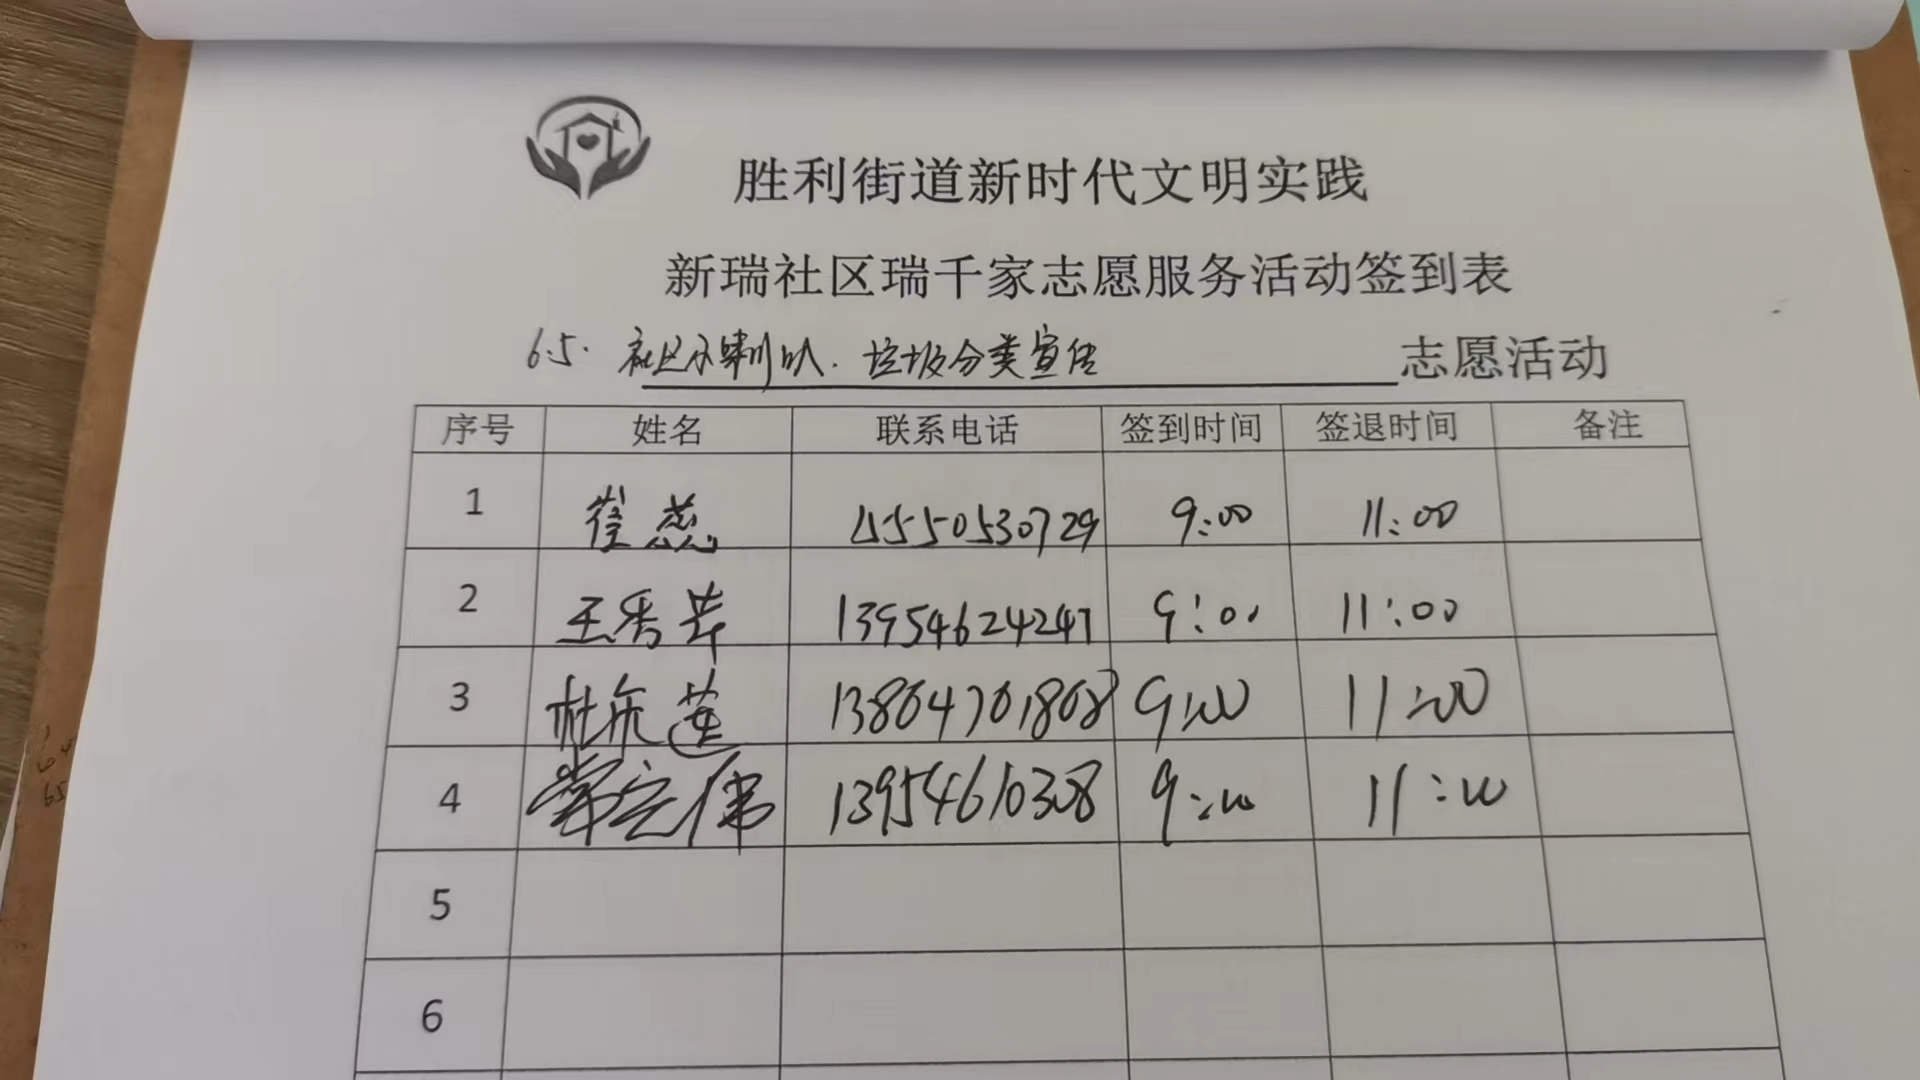 胜利街道新时代文明实践
新瑞社区瑞千家志愿服务活动签到表
6.5. 社区小喇叭. 垃圾分类宣传 志愿活动
序号 姓名 联系电话 签到时间 签退时间 备注
1 崔蕊 15550530729 9:00 11:00
2 王秀芹 13954624247 9:00 11:00
3 杜 莲 13864701808 9:00 11:00
4 常立伟 13954610308 9:00 11:00
5
6